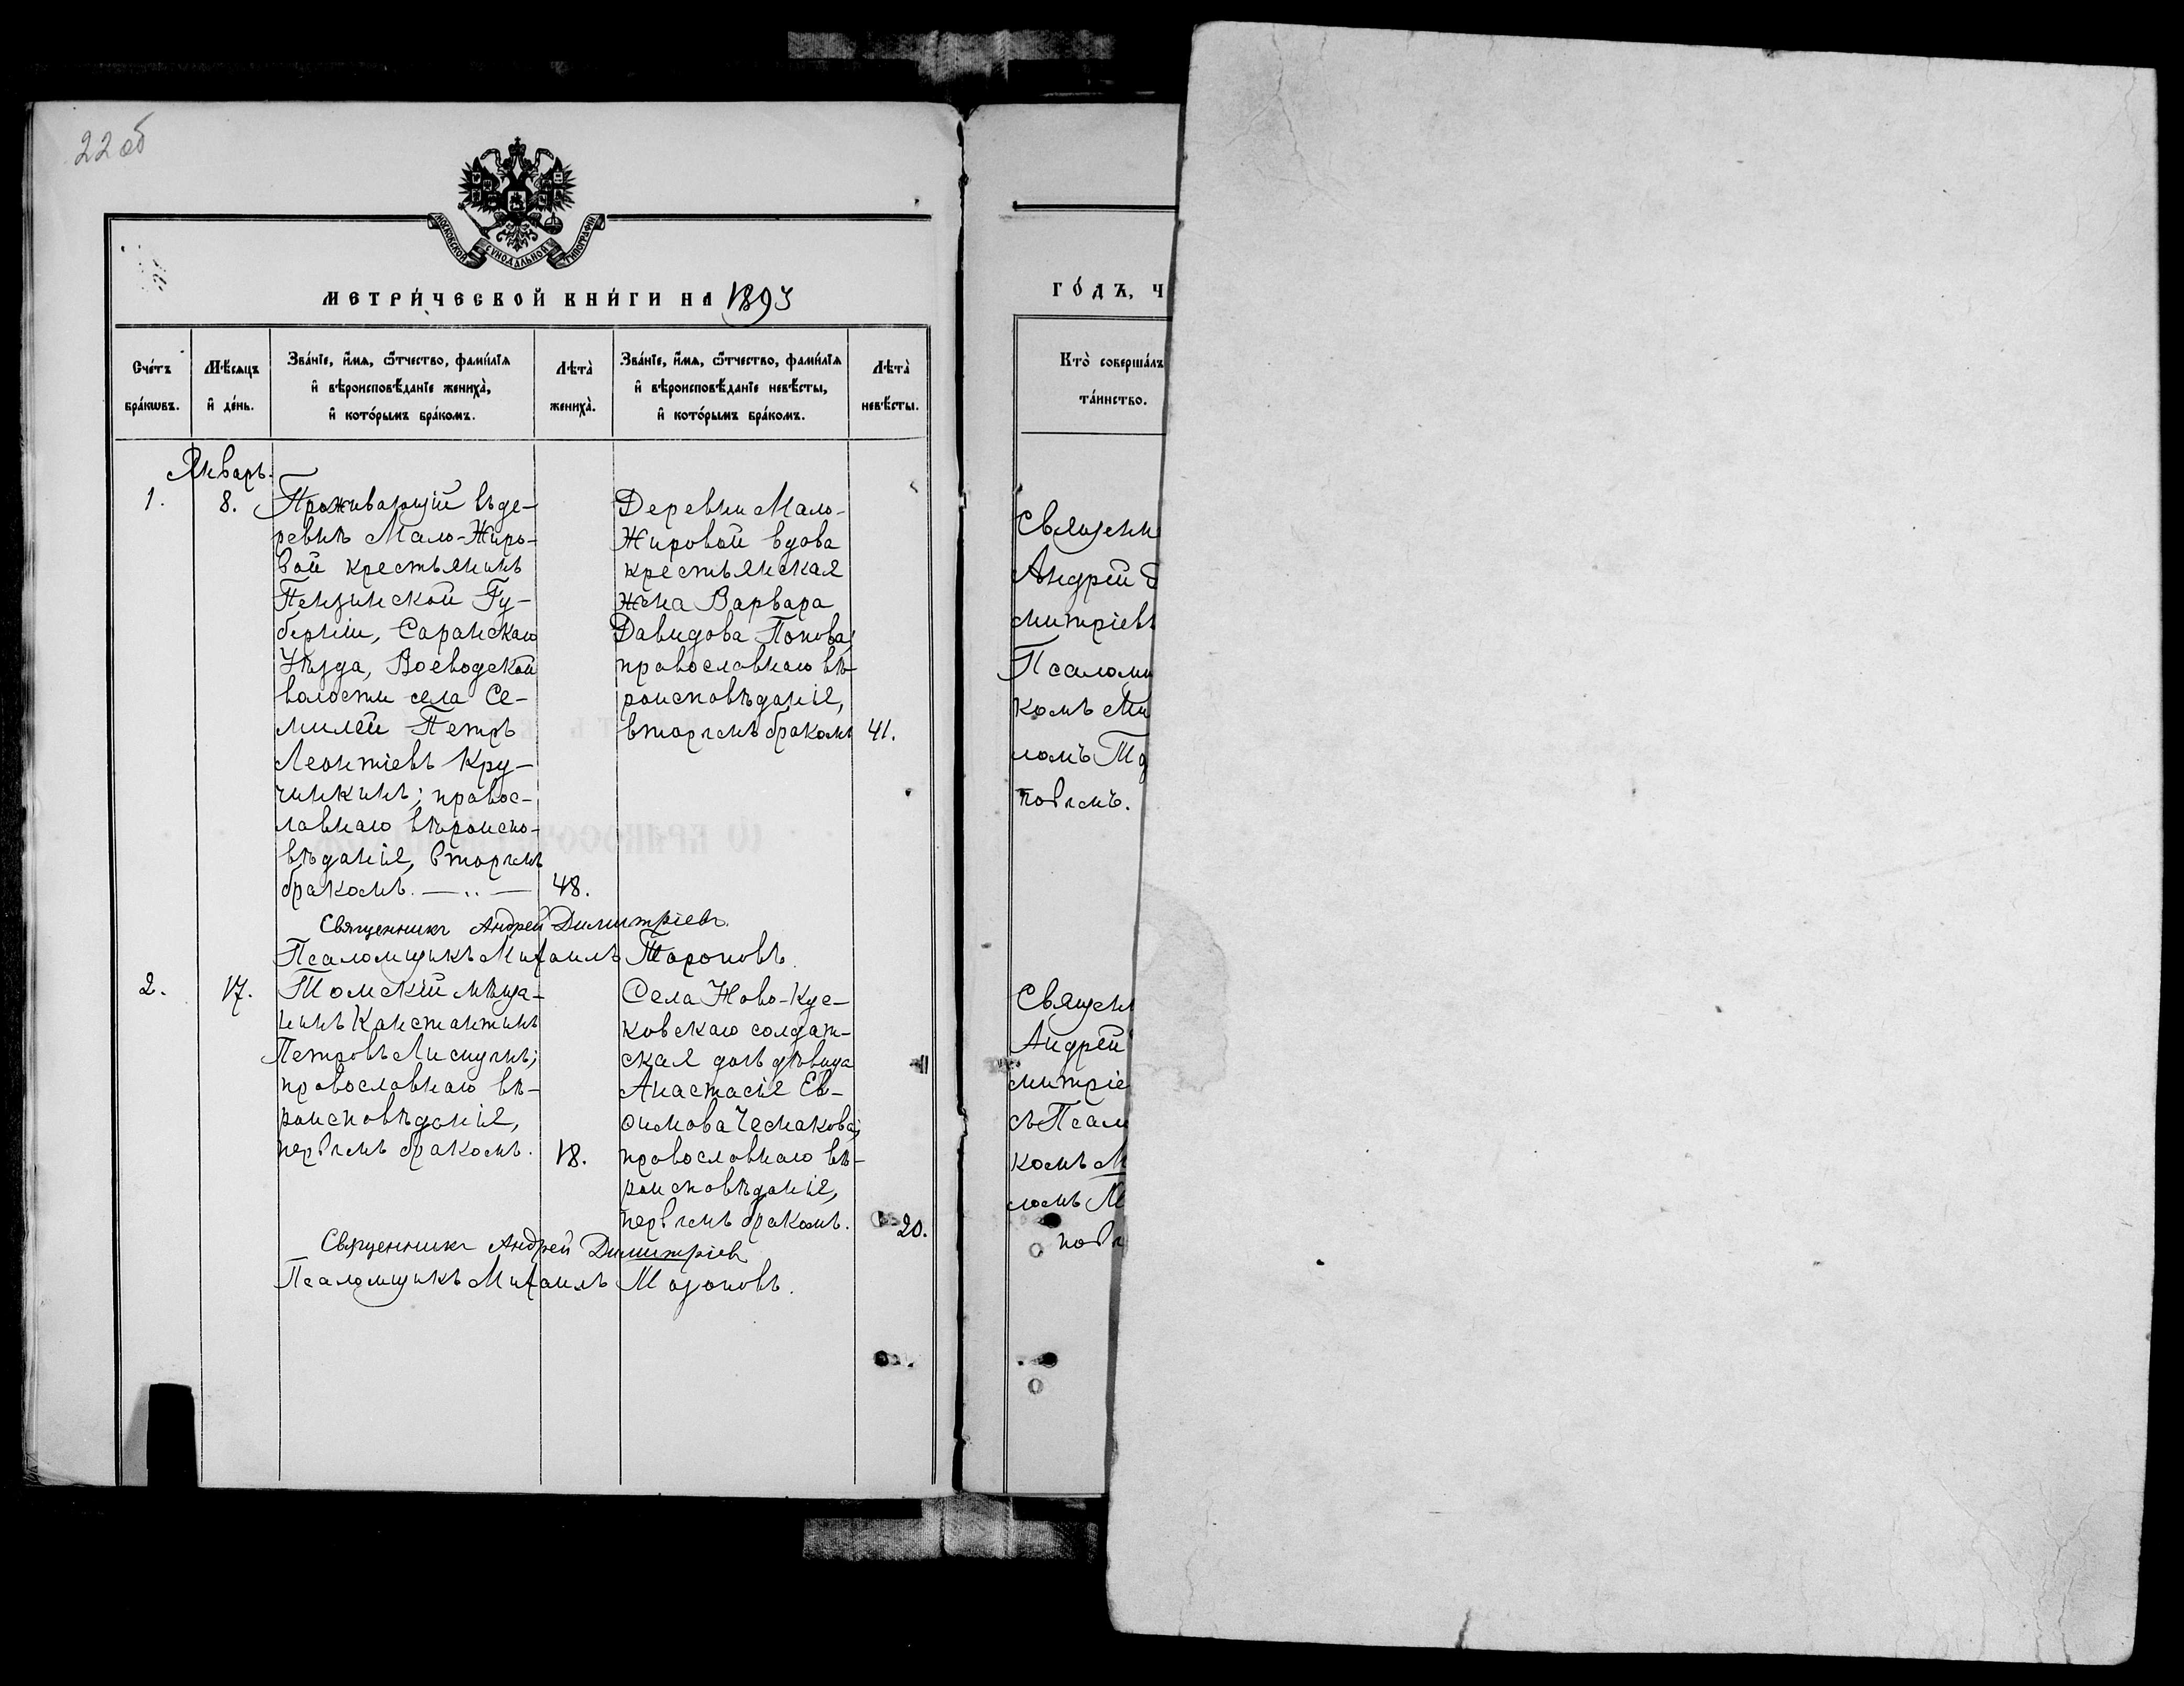 22 об
МОСКОВСКОЙ СѴНОДАЛЬНОЙ ТИПОГРАФІИ
МЕТРИ́ЧЕСКОЙ КНИ́ГИ НА 1893
ГО́ДЪ, Ч
Сче́тъ бра́кѡвъ.
Мѣ́сяцъ и҆ де́нь.
Зва́нїе, и҆́мѧ, ѻ҆́тчество, фамѝлїѧ
и҆ вѣроисповѣ́данїе жениха̀,
и҆ кото́рымъ бра́комъ.
Лѣта̀ жениха̀.
Зва́нїе, и҆́мѧ, ѻ҆́тчество, фамѝлїѧ
и҆ вѣроисповѣ́данїе невѣ́сты,
и҆ кото́рымъ бра́комъ.
Лѣта̀ невѣ́сты.
Кто̀ соверша́лъ
та́инство.
Январь.
1.
8.
Проживающій въ де-
ревнѣ Мало-Жиро-
вой крестьянинъ
Пензинской Гу-
берніи, Саранскаго
Уѣзда, Воеводской
волости села Се-
милей Петръ
Леонтіевъ Кру-
чинкинъ; правос-
лавнаго вѣроиспо-
вѣданія, вторымъ
бракомъ. — .. —
48.
Деревни Мало-
Жировой вдова
крестьянская
жена Варвара
Давидова Попова;
православнаго вѣ-
роисповѣданія,
вторымъ бракомъ
41.
Священн
Андрей
митріевъ
Псаломщ
комъ Ми
ломъ
повымъ.
Священникъ Андрей Димитріевъ
Псаломщикъ Михаилъ Тороповъ.
2.
17.
Томскій мѣща-
нинъ Константинъ
Петровъ
православнаго вѣ-
роисповѣданія,
первымъ бракомъ.
18.
Села Ново-Кус-
ковскаго солдат-
ская дочь дѣвица
Анастасія Ев-
фимова Чеснакова;
православнаго вѣ-
роисповѣданія,
первымъ бракомъ.
20.
Священ
Андрей
митріе
съ Псал
комъ М
ломъ
повы
Священникъ Андрей Димитріев
Псаломщикъ Михаилъ Тороповъ.